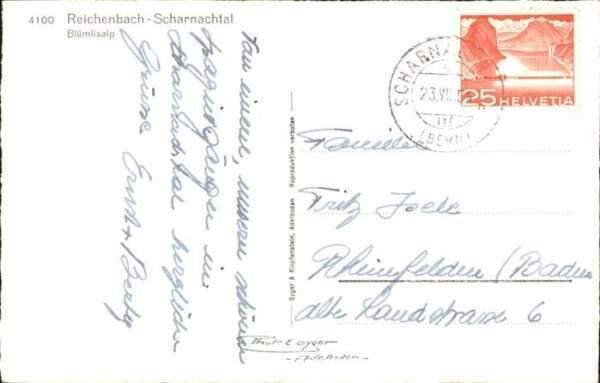 4100 Reichenbach - Scharnachtal
Blümlisalp
unsern schönen
Spaziergängen im
Scharnachtal herzliche
Grüsse Ernst + Berty
Gyger & Klopfenstein, Adelboden Reproduktion verboten
SCHARNA
23.VII.5
(BERN)
25 HELVETIA
Familie
Fritz Isele
Rheinfelden (Baden
alte Landstrasse 6
- Adelboden -